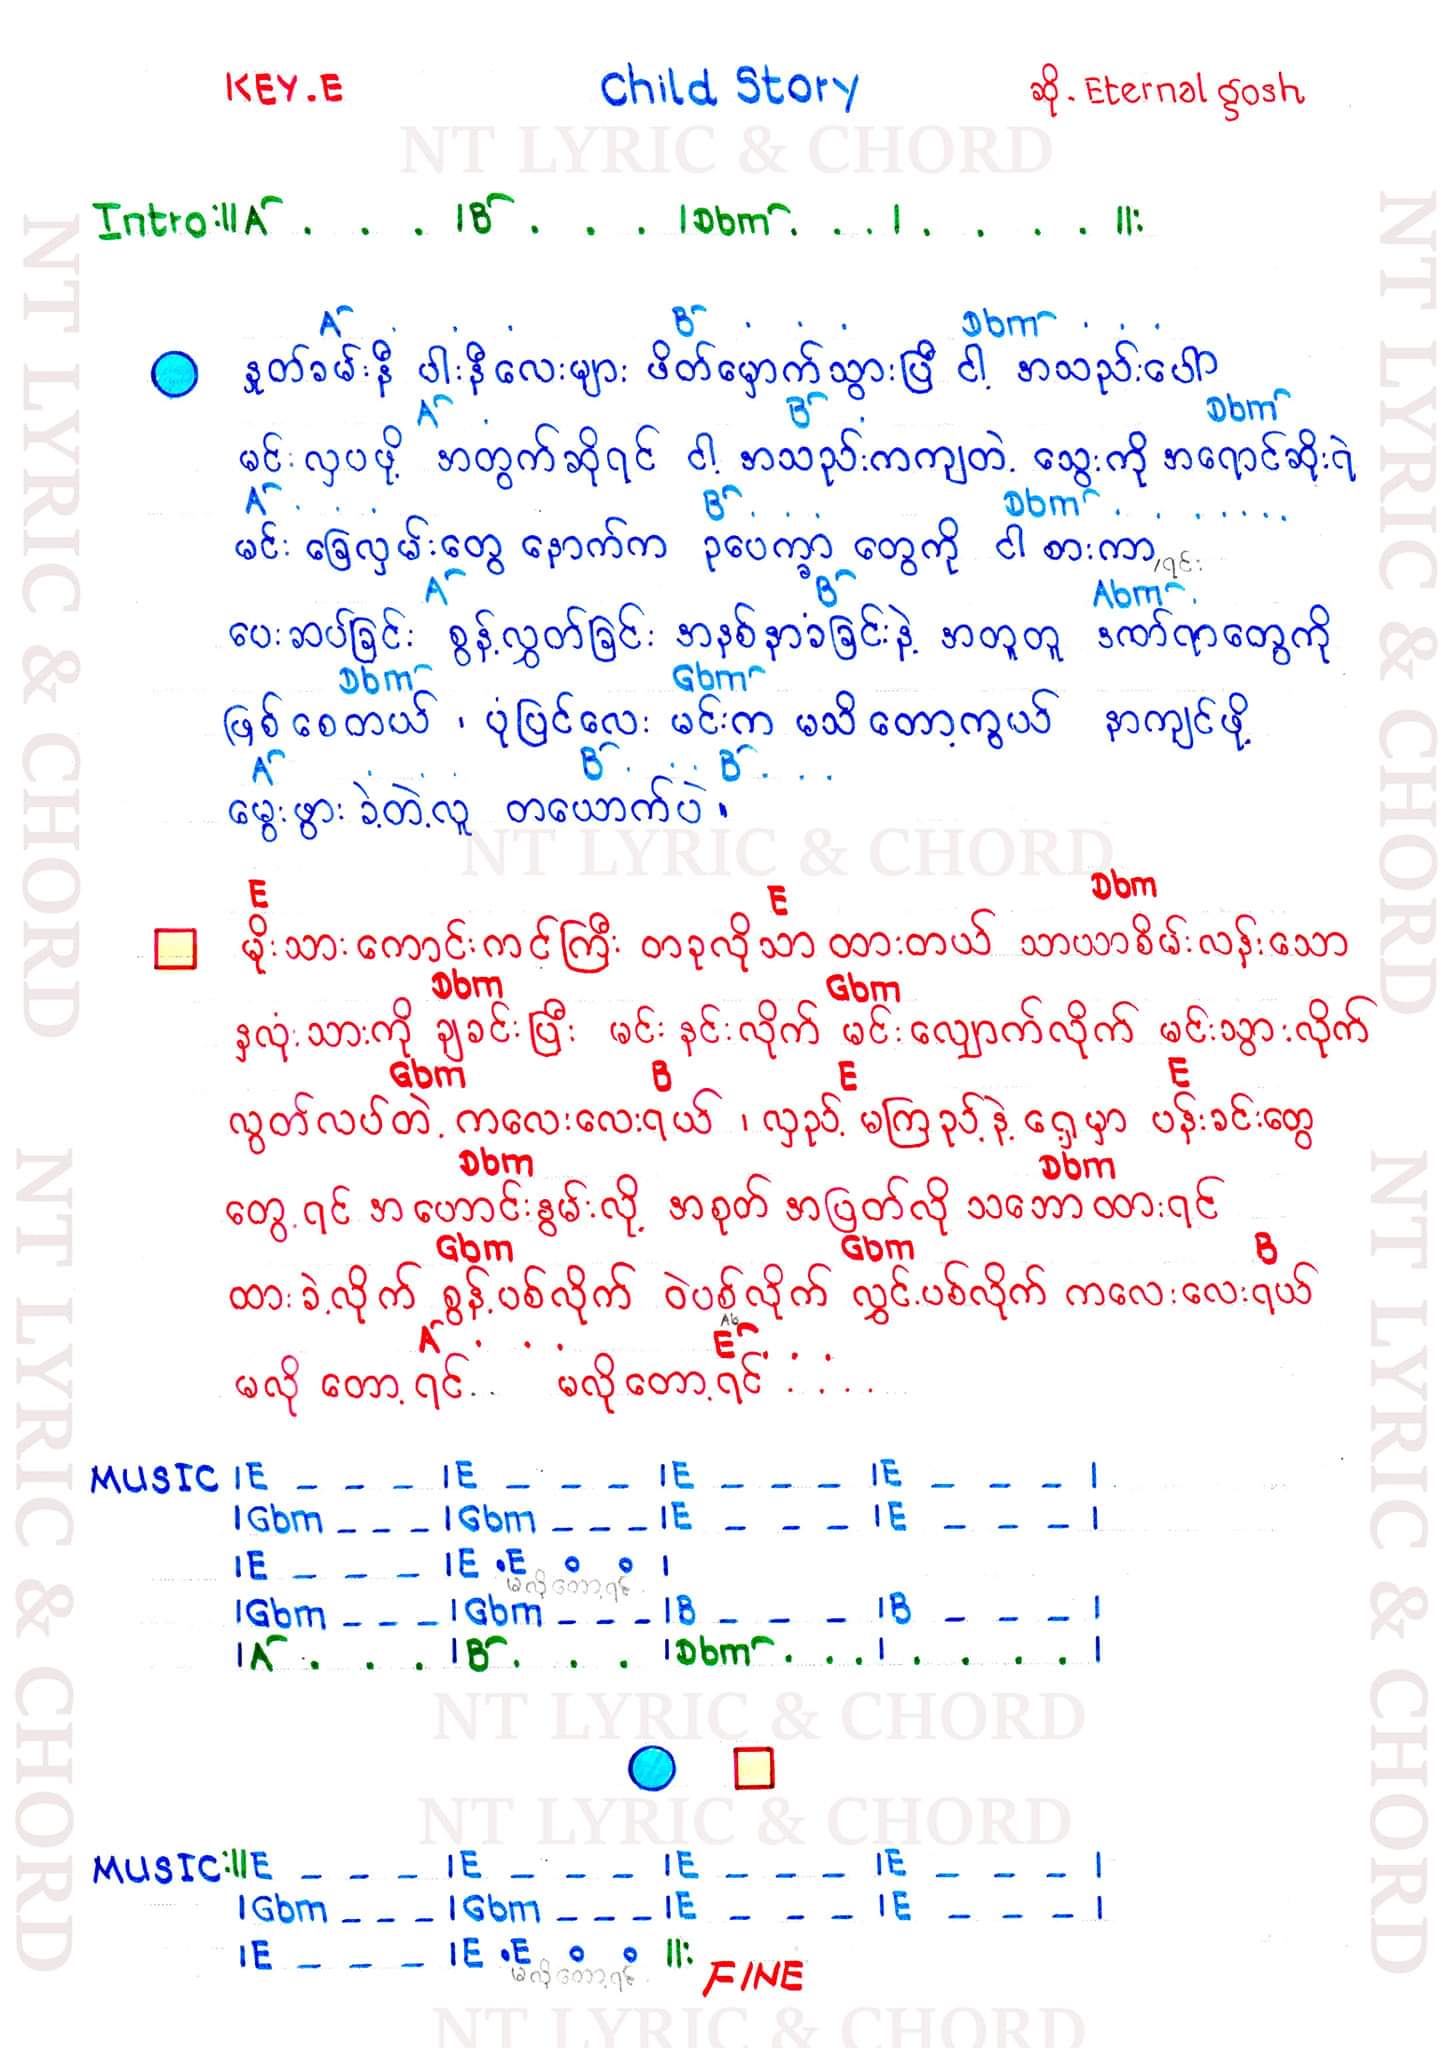 KEY.E Child Story ဆို. Eternal gosh
NT LYRIC & CHORD
Intro:||A . . . |B . . . |Dbm . . . | . . . . ||:
A . . . B . . . Dbm . . .
နှုတ်ခမ်းနီ ပါးနီလေးများ ဖိတ်မှောက်သွားပြီ ငါ့ အသည်းပေါ်
A . B . Dbm
မင်းလှပဖို့ အတွက်ဆိုရင် ငါ့ အသည်းကကျတဲ့ သွေးကို အရောင်ဆိုးရဲ
A . . . B . . . Dbm . . . . . . .
မင်း ခြေလှမ်းတွေ နောက်က ဥပေက္ခာ တွေကို ငါ စားကာ
၊ရင်း
A B Abm .
ပေးဆပ်ခြင်း စွန့်လွှတ်ခြင်း အနစ်နာခံခြင်းနဲ့ အတူတူ ဒဏ်ရာတွေကို
Dbm Gbm
ဖြစ်စေတယ် ၊ ပုံပြင်လေး မင်းက မသိတော့ကွယ် နာကျင်ဖို့
A . . . B . . . B . . .
မွေးဖွားခဲ့တဲ့လူ တယောက်ပဲ ။
NT LYRIC & CHORD
E E Dbm
မိုးသားကောင်းကင်ကြီး တခုလိုသာ ထားတယ် သာယာစိမ်းလန်းသော
Dbm Gbm
နှလုံးသားကို ချခင်းပြီး မင်းနင်းလိုက် မင်းလျှောက်လိုက် မင်းသွားလိုက်
Gbm B E E
လွတ်လပ်တဲ့ ကလေးလေးရယ် ၊ လှည့်မကြည့်နဲ့ ရှေ့မှာ ပန်းခင်းတွေ
Dbm Dbm
တွေ့ရင် အဟောင်းနွမ်းလို့ အစုတ်အပြတ်လို သဘောထားရင်
Gbm Gbm B
ထားခဲ့လိုက် စွန့်ပစ်လိုက် ဝဲပစ်လိုက် လွှင့်ပစ်လိုက် ကလေးလေးရယ်
A . . . Ab E . . .
မလိုတော့ရင်.. မလိုတော့ရင် . . . .
MUSIC |E _ _ _ |E _ _ _ |E _ _ _ |E _ _ _ |
|Gbm _ _ _ |Gbm _ _ _ |E _ _ _ |E _ _ _ |
|E _ _ _ |E .E o o |
မလိုတော့ရင်
|Gbm _ _ _ |Gbm _ _ _ |B _ _ _ |B _ _ _ |
|A . . . |B . . . |Dbm . . . | . . . . |
NT LYRIC & CHORD
NT LYRIC & CHORD
MUSIC:||E _ _ _ |E _ _ _ |E _ _ _ |E _ _ _ |
|Gbm _ _ _ |Gbm _ _ _ |E _ _ _ |E _ _ _ |
|E _ _ _ |E .E o o ||:
မလိုတော့ရင်
FINE
NT LYRIC & CHORD
NT LYRIC & CHORD
NT LYRIC & CHORD
NT LYRIC & CHORD
NT LYRIC & CHORD